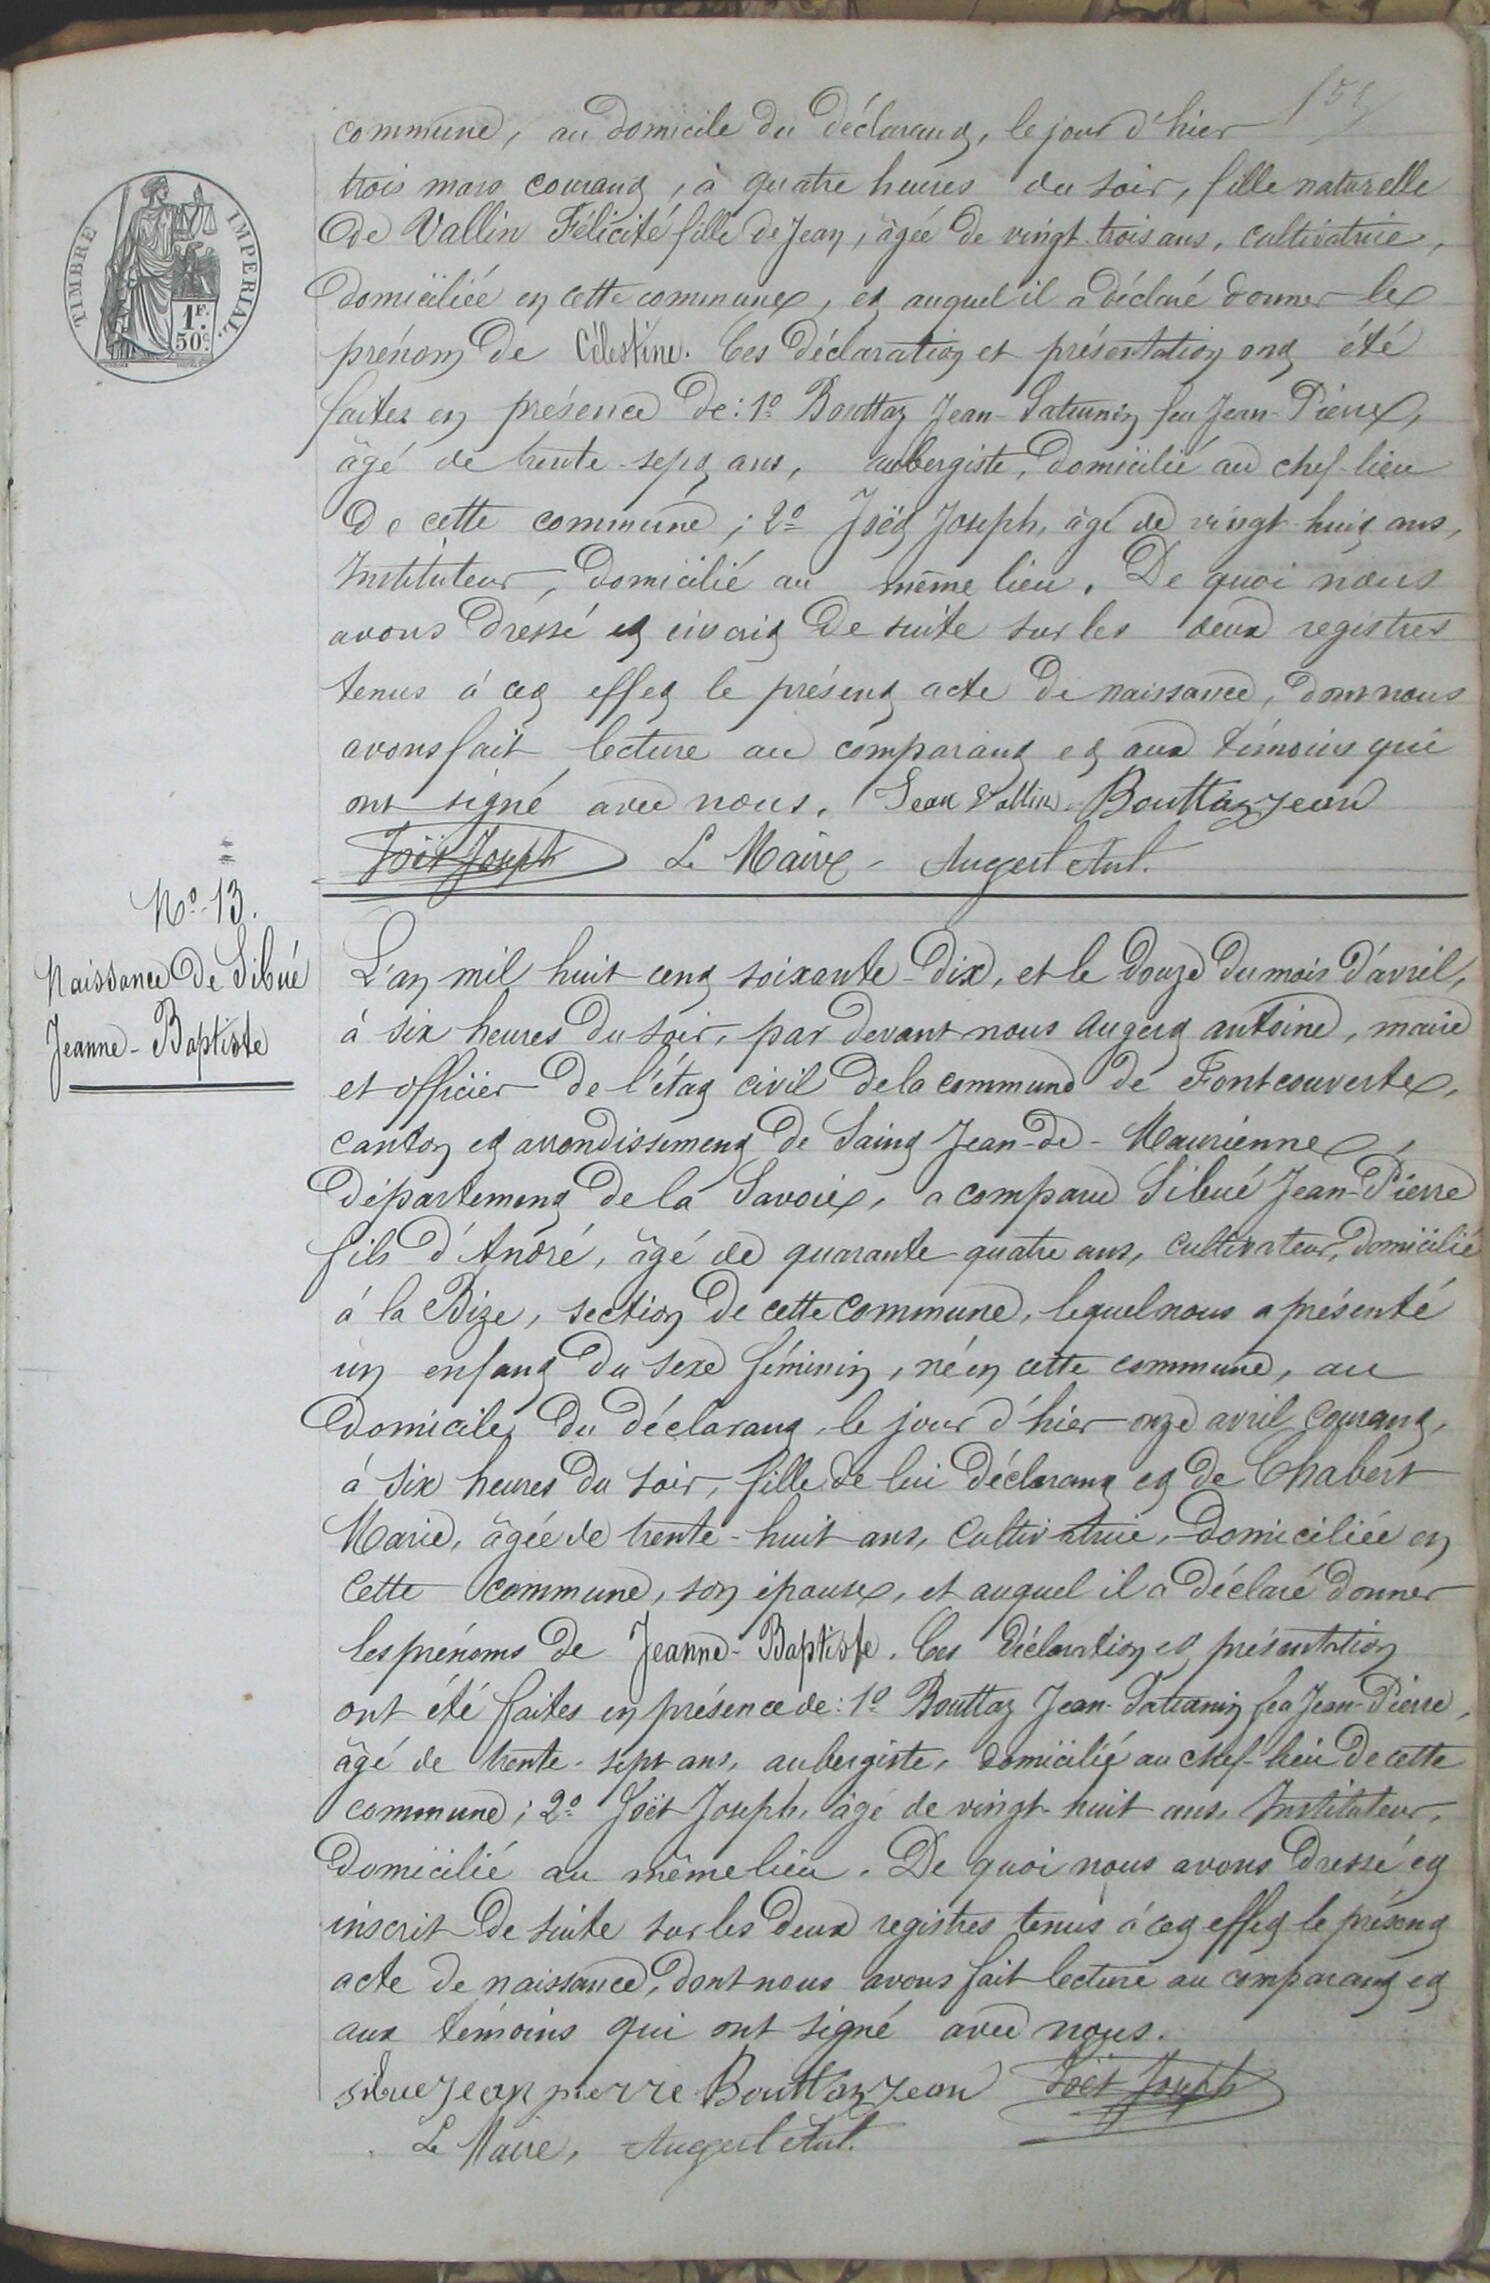 151
commune, au domicile du déclarant, le jour d'hier
trois mars courant, à quatre heures du soir, fille naturelle
de Vallin Félicité fille de Jean, âgée de vingt trois ans, cultivatrice,
domiciliée en cette commune, et auquel il a déclaré donner le
prénom de Célestine. Ces déclaration et présentation ont été
faites en présence de: 1º Bouttaz Jean-Saturnin feu Jean-Pierre,
âgé de trente-sept ans, aubergiste, domicilié au chef-lieu
de cette commune; 2º Joët Joseph, âgé de vingt-huit ans,
Instituteur, domicilié au même lieu. De quoi nous
avons dressé et inscrit de suite sur les deux registres
tenus à cet effet le présent acte de naissance, dont nous
avons fait lecture au comparant et aux témoins qui
ont signé avec nous. Jean Vallin Bouttaz Jean
Joët Joseph Le Maire, Augert Ant.
TIMBRE IMPERIAL.
1F.
50c.
Nº 13.
Naissance de Sibué
Jeanne-Baptiste
L'an mil huit cent soixante-dix, et le douze du mois d'avril,
à six heures du soir, par devant nous Augert antoine, maire
et officier de l'état civil de la commune de Fontcouverte,
canton et arrondissement de Saint Jean-de-Maurienne,
département de la Savoie, a comparu Sibué Jean-Pierre
fils d'André, âgé de quarante-quatre ans, cultivateur, domicilié
à la Bize, section de cette commune, lequel nous a présenté
un enfant du sexe féminin, né en cette commune, au
domicile du déclarant, le jour d'hier onze avril courant,
à six heures du soir, fille de lui déclarant et de Chabert
Marie, âgée de trente-huit ans, cultivatrice, domiciliée en
cette commune, son épouse, et auquel il a déclaré donner
les prénoms de Jeanne-Baptiste. Ces déclaration et présentation
ont été faites en présence de: 1º Bouttaz Jean-Saturnin feu Jean-Pierre,
âgé de trente-sept ans, aubergiste, domicilié au chef-lieu de cette
commune; 2º Joët Joseph, âgé de vingt-huit ans, Instituteur,
domicilié au même lieu. De quoi nous avons dressé et
inscrit de suite sur les deux registres tenus à cet effet le présent
acte de naissance, dont nous avons fait lecture au comparant et
aux témoins qui ont signé avec nous.
sibue jean pierre Bouttaz Jean Joët Joseph
Le Maire, Augert Ant.